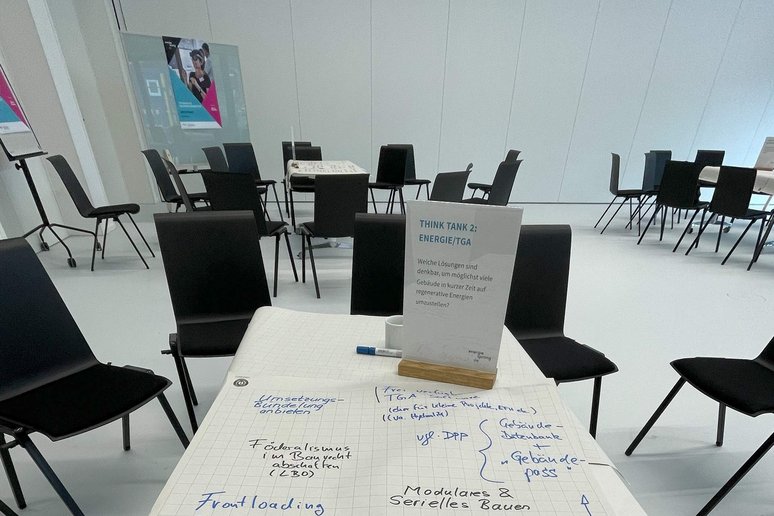 THINK TANK 2:
ENERGIE/TGA
Welche Lösungen sind
denkbar, um möglichst viele
Gebäude in kurzer Zeit auf
regenerative Energien
umzustellen?
Umsetzungs-
Bündelung
anbieten
Föderalismus
im Baurecht
abschaffen
(LBO)
Frontloading
Frei
TGA
vgl. DPP
Gebäude-
Datenbank
+
"Gebäude-
pass"
Modulares &
Serielles Bauen